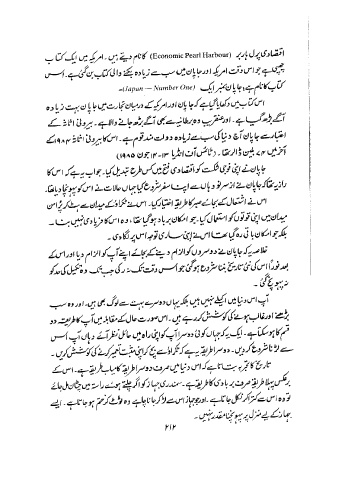 اقتصادی پرل ہاربر (Economic Pearl Harbour) کا نام دیتے ہیں۔ امریکہ میں ایک کتاب
چھپی ہے جو اس وقت امریکہ اور جاپان میں سب سے زیادہ بکنے والی کتاب بن گئی ہے۔ اس
کتاب کا نام ہے، جاپان نمبر ایک (Japan — Number One)۔
اس کتاب میں دکھایا گیا ہے کہ جاپان اور امریکہ کے درمیان تجارت میں جاپان بہت زیادہ
آگے بڑھ گیا ہے۔ اور عنقریب وہ برطانیہ سے بھی آگے بڑھ جانے والا ہے۔ بیرونی اثاثہ کے
اعتبار سے جاپان آج دنیا کی سب سے زیادہ دولت مند قوم ہے۔ اس کا بیرونی اثاثہ ۱۹۸۴ کے
آخر میں ۷۴ بلین ڈالر تھا۔ (ٹائمس آف انڈیا ۱۳-۱۴ جون ۱۹۸۵)
جاپان نے اپنی فوجی شکست کو اقتصادی فتح میں کس طرح تبدیل کیا۔ جواب یہ ہے کہ اس کا
راز یہ تھا کہ جاپان نے از سر نو وہاں سے اپنا سفر شروع کیا جہاں حالات نے اس کو پہونچا دیا تھا۔
اس نے اشتعال کے بجائے صبر کا طریقہ اختیار کیا۔ اس نے ٹکراؤ کے میدان سے ہٹ کر پُرامن
میدان میں اپنی قوتوں کو استعمال کیا۔ جو امکان برباد ہو گیا تھا، وہ اس کا فریادی نہیں بنا۔
بلکہ جو امکان باقی رہ گیا تھا اس نے اپنی ساری توجہ اس پر لگا دی۔
خلاصہ یہ کہ جاپان نے دوسروں کو الزام دینے کے بجائے اپنے آپ کو الزام دیا اور اس کے
بعد فوراً اس کی نئی تاریخ بننا شروع ہو گئی جو اس وقت تک نہ رکی جب تک وہ تکمیل کی حد کو
نہ پہونچ گئی۔
آپ اس دنیا میں اکیلے نہیں ہیں بلکہ یہاں دوسرے بہت سے لوگ بھی ہیں، اور وہ سب
بڑھنے اور غالب ہونے کی کوشش کر رہے ہیں۔ اس صورت حال کے مقابلہ میں آپ کا طریقہ دو
قسم کا ہو سکتا ہے۔ ایک یہ کہ جہاں کوئی دوسرا آپ کو اپنی راہ میں حائل نظر آئے وہاں آپ اس
سے لڑنا شروع کر دیں۔ دوسرا طریقہ یہ ہے کہ ٹکراؤ سے بچ کر اپنی مثبت تعمیر کرنے کی کوشش کریں۔
تاریخ کا تجربہ یہ بتاتا ہے کہ اس دنیا میں صرف دوسرا طریقہ کامیاب طریقہ ہے۔ اس کے
برعکس پہلا طریقہ صرف بربادی کا طریقہ ہے۔ سمندری جہاز کو اگر چلتے ہوئے راستہ میں چٹان مل جائے
تو وہ اس سے کترا کر نکل جاتا ہے۔ اور جو جہاز اس سے لڑ کر جانا چاہے وہ ٹوٹ کر ختم ہو جاتا ہے۔ ایسے
جہاز کے لیے منزل پر پہونچنا مقدر نہیں۔
۲۱۲